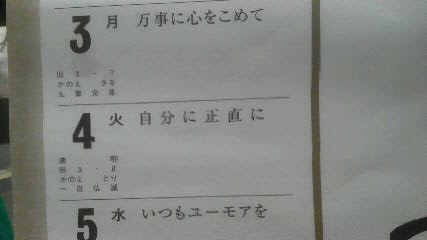 3 月 万事に心をこめて
旧 3 ・ 7
かのえ さる
九紫先負
4 火 自分に正直に
清 明
旧 3 ・ 8
かのと とり
一白仏滅
5 水 いつもユーモアを